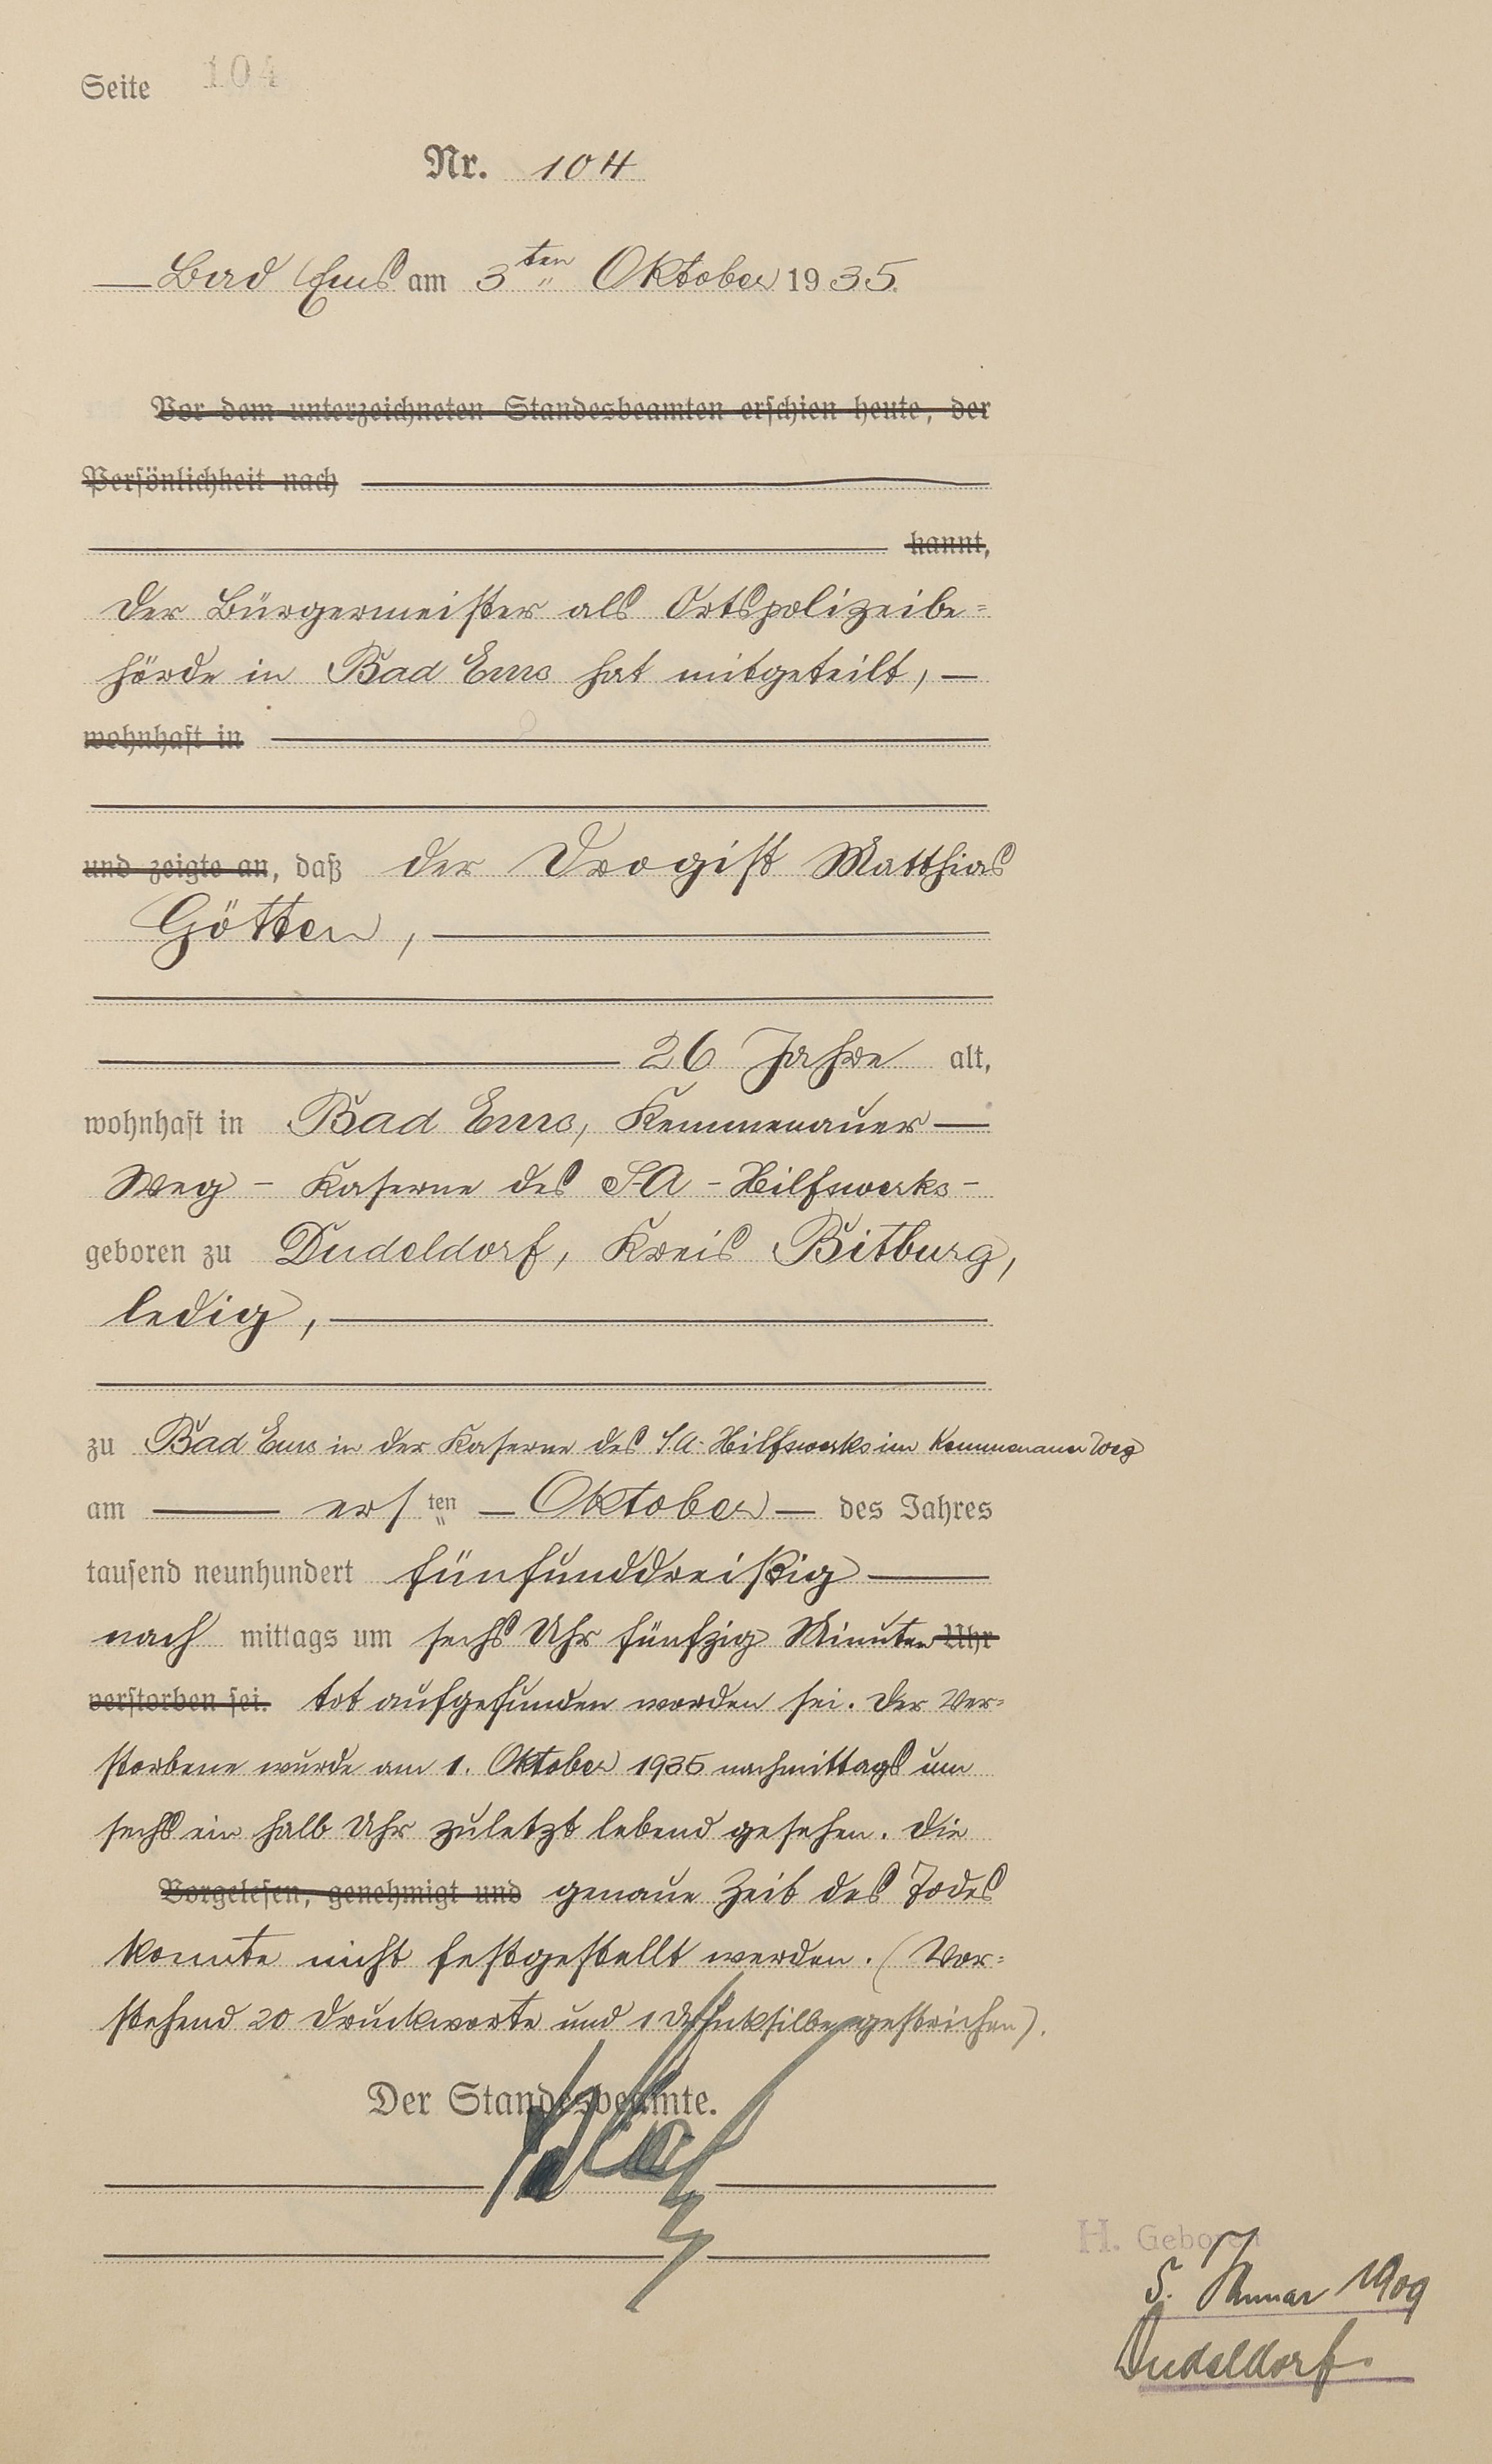 Seite 104
Nr. 104
Bad Ems am 3ten Oktober 1935.
Vor dem unterzeichneten Standesbeamten erschien heute, der
Persönlichkeit nach
kannt,
Der Bürgermeister als Ortspolizeibe=
hörde in Bad Ems hat mitgeteilt, —
wohnhaft in
und zeigte an, daß der Drogist Matthias
Götten,
26 Jahre alt,
wohnhaft in Bad Ems, Kemmenauer —
Weg - Kaserne des SA - Hilfswerks -
geboren zu Dudeldorf, Kreis Bitburg,
ledig,
zu Bad Ems in der Kaserne des S.A. Hilfswerks im Kemmenauer Weg
am — ersten — Oktober — des Jahres
tausend neunhundert fünfunddreißig
nach mittags um sechs Uhr fünfzig Minuten Uhr
verstorben sei. tot aufgefunden worden sei. Der Ver=
storbene wurde am 1. Oktober 1935 nachmittags um
sechs ein halb Uhr zuletzt lebend gesehen. Die
Vorgelesen, genehmigt und genaue Zeit des Todes
konnte nicht festgestellt werden. (Vor=
stehend 20 Druckworte und 1 Druksilbe gestrichen).
Der Standesbeamte.
H. Geboren
5. Januar 1909
Dudeldorf.